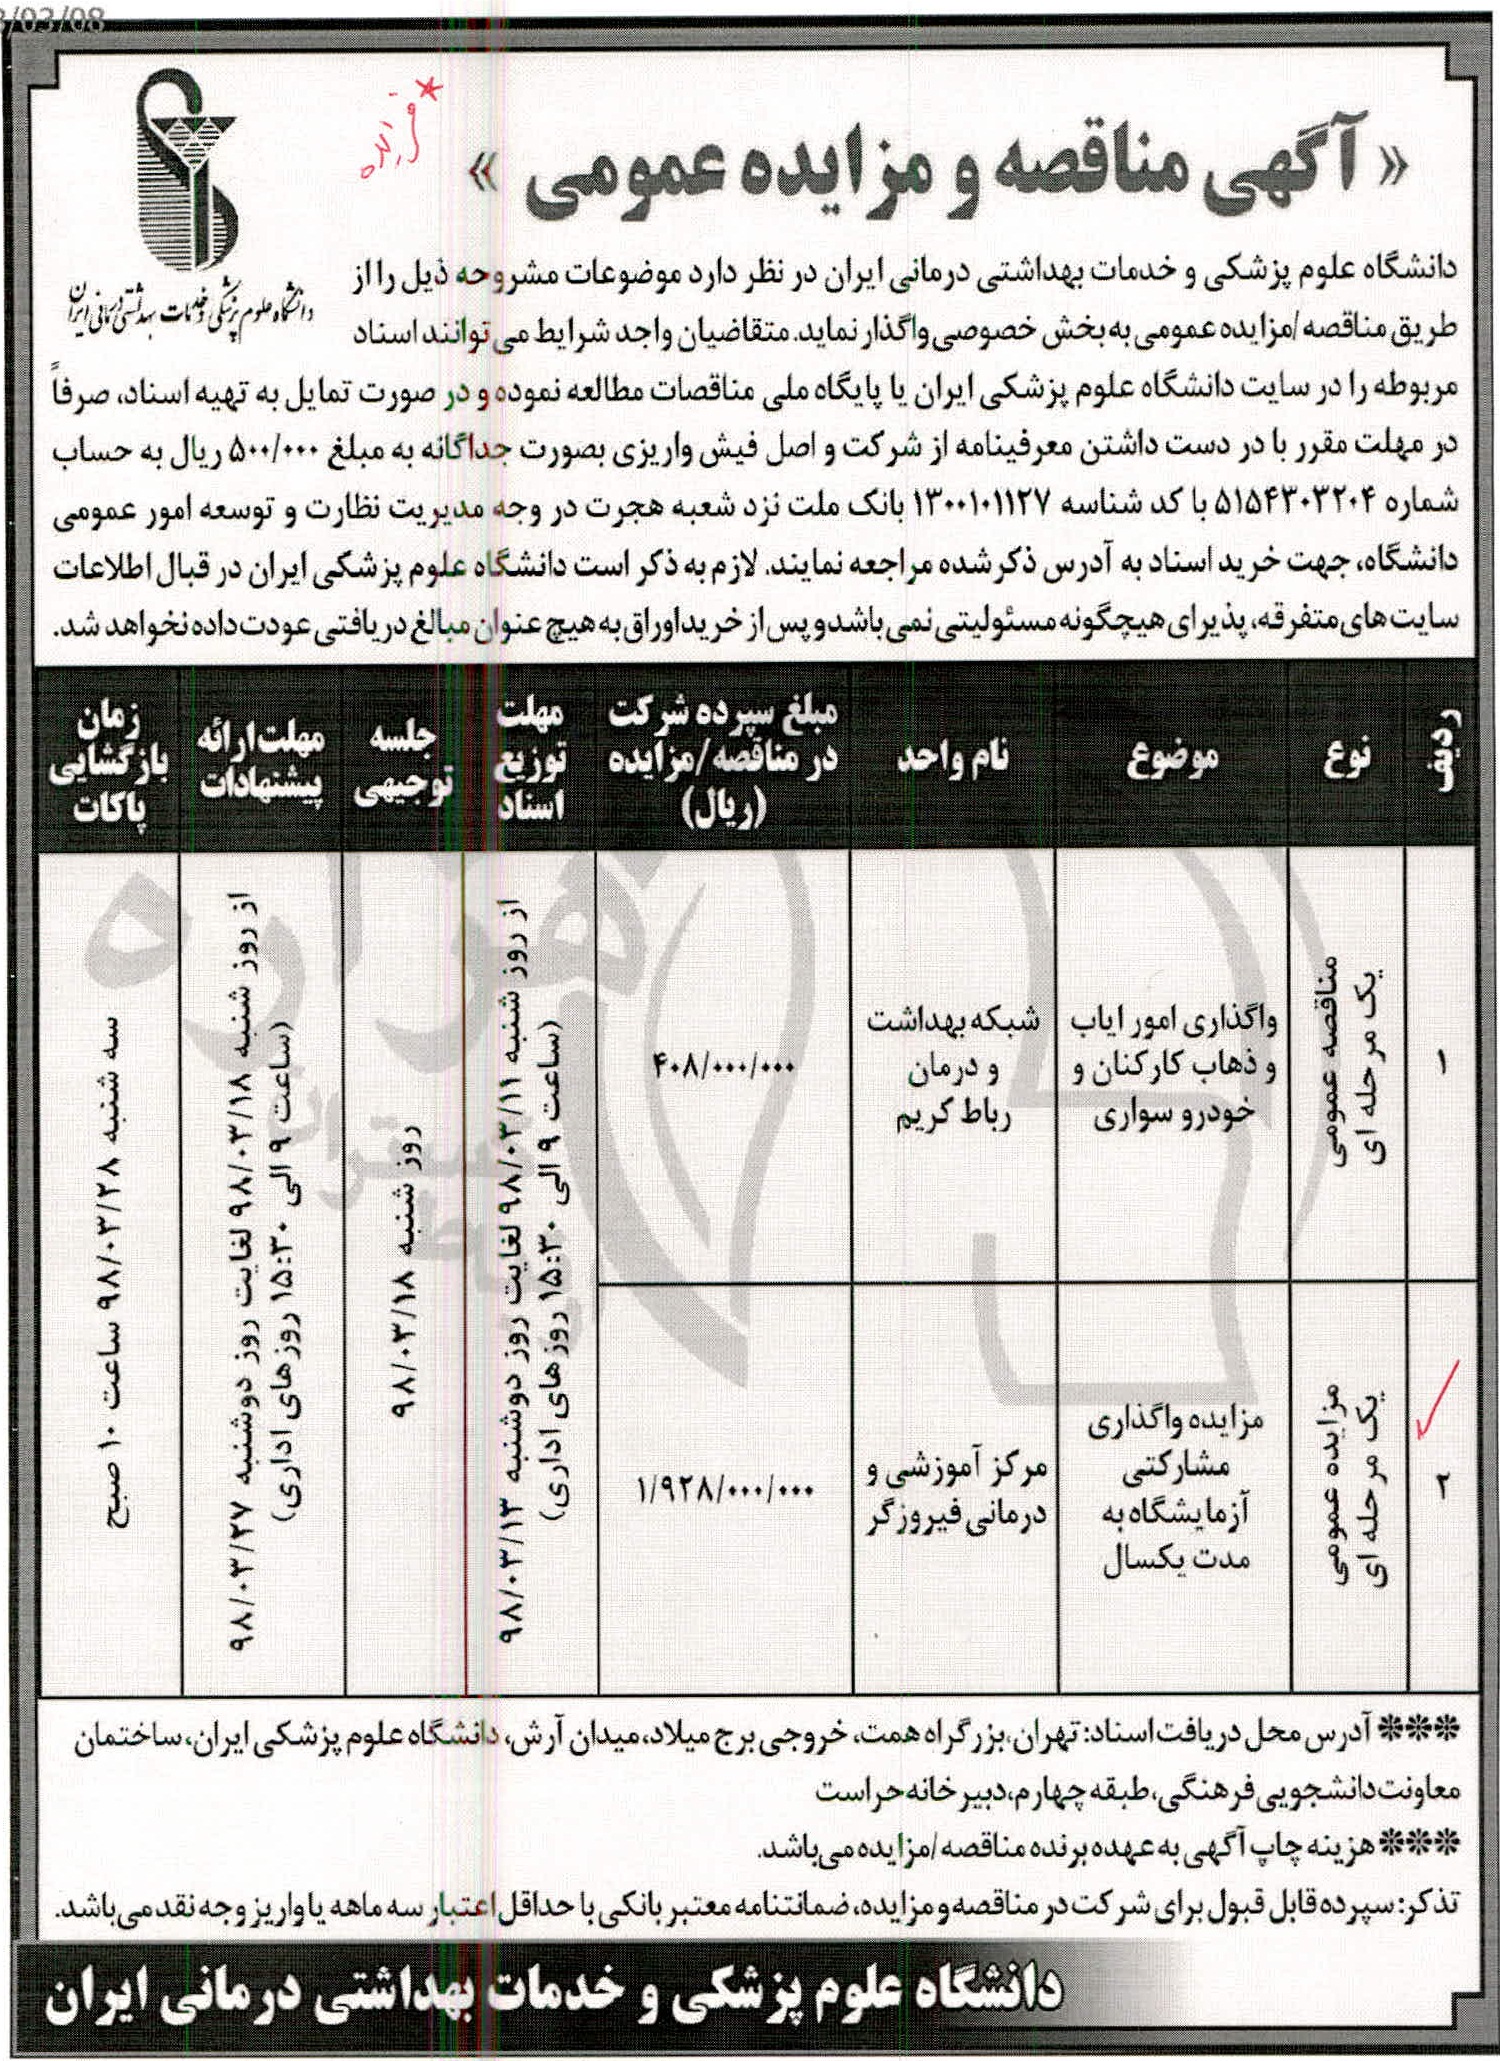 3/03/08
« آگهی مناقصه و مزایده عمومی »
* مزایده
دانشگاه علوم پزشکی و خدمات بهداشتی درمانی ایران
دانشگاه علوم پزشکی و خدمات بهداشتی درمانی ایران در نظر دارد موضوعات مشروحه ذیل را از
طریق مناقصه/مزایده عمومی به بخش خصوصی واگذار نماید. متقاضیان واجد شرایط می توانند اسناد
مربوطه را در سایت دانشگاه علوم پزشکی ایران یا پایگاه ملی مناقصات مطالعه نموده و در صورت تمایل به تهیه اسناد، صرفاً
در مهلت مقرر با در دست داشتن معرفینامه از شرکت و اصل فیش واریزی بصورت جداگانه به مبلغ ۵۰۰/۰۰۰ ریال به حساب
شماره ۵۱۵۴۳۰۳۲۰۴ با کد شناسه ۱۳۰۰۱۰۱۱۲۷ بانک ملت نزد شعبه هجرت در وجه مدیریت نظارت و توسعه امور عمومی
دانشگاه، جهت خرید اسناد به آدرس ذکر شده مراجعه نمایند. لازم به ذکر است دانشگاه علوم پزشکی ایران در قبال اطلاعات
سایت های متفرقه، پذیرای هیچگونه مسئولیتی نمی باشد و پس از خرید اوراق به هیچ عنوان مبالغ دریافتی عودت داده نخواهد شد.
ردیف
نوع
موضوع
نام واحد
مبلغ سپرده شرکت
در مناقصه/مزایده
(ریال)
مهلت
توزیع
اسناد
جلسه
توجیهی
مهلت ارائه
پیشنهادات
زمان
بازگشایی
پاکات
۱
مناقصه عمومی
یک مرحله ای
واگذاری امور ایاب
و ذهاب کارکنان و
خودرو سواری
شبکه بهداشت
و درمان
رباط کریم
۴۰۸/۰۰۰/۰۰۰
از روز شنبه ۹۸/۰۳/۱۱ لغایت روز دوشنبه ۹۸/۰۳/۱۳
(ساعت ۹ الی ۱۵:۳۰ روزهای اداری)
روز شنبه ۹۸/۰۳/۱۸
از روز شنبه ۹۸/۰۳/۱۸ لغایت روز دوشنبه ۹۸/۰۳/۲۷
(ساعت ۹ الی ۱۵:۳۰ روزهای اداری)
سه شنبه ۹۸/۰۳/۲۸ ساعت ۱۰ صبح
۲
مزایده عمومی
یک مرحله ای
مزایده واگذاری
مشارکتی
آزمایشگاه به
مدت یکسال
مرکز آموزشی و
درمانی فیروزگر
۱/۹۲۸/۰۰۰/۰۰۰
هزاره
*** آدرس محل دریافت اسناد: تهران، بزرگراه همت، خروجی برج میلاد، میدان آرش، دانشگاه علوم پزشکی ایران، ساختمان
معاونت دانشجویی فرهنگی، طبقه چهارم، دبیرخانه حراست
*** هزینه چاپ آگهی به عهده برنده مناقصه/مزایده می باشد.
تذکر: سپرده قابل قبول برای شرکت در مناقصه و مزایده، ضمانتنامه معتبر بانکی با حداقل اعتبار سه ماهه یا واریز وجه نقد می باشد.
دانشگاه علوم پزشکی و خدمات بهداشتی درمانی ایران